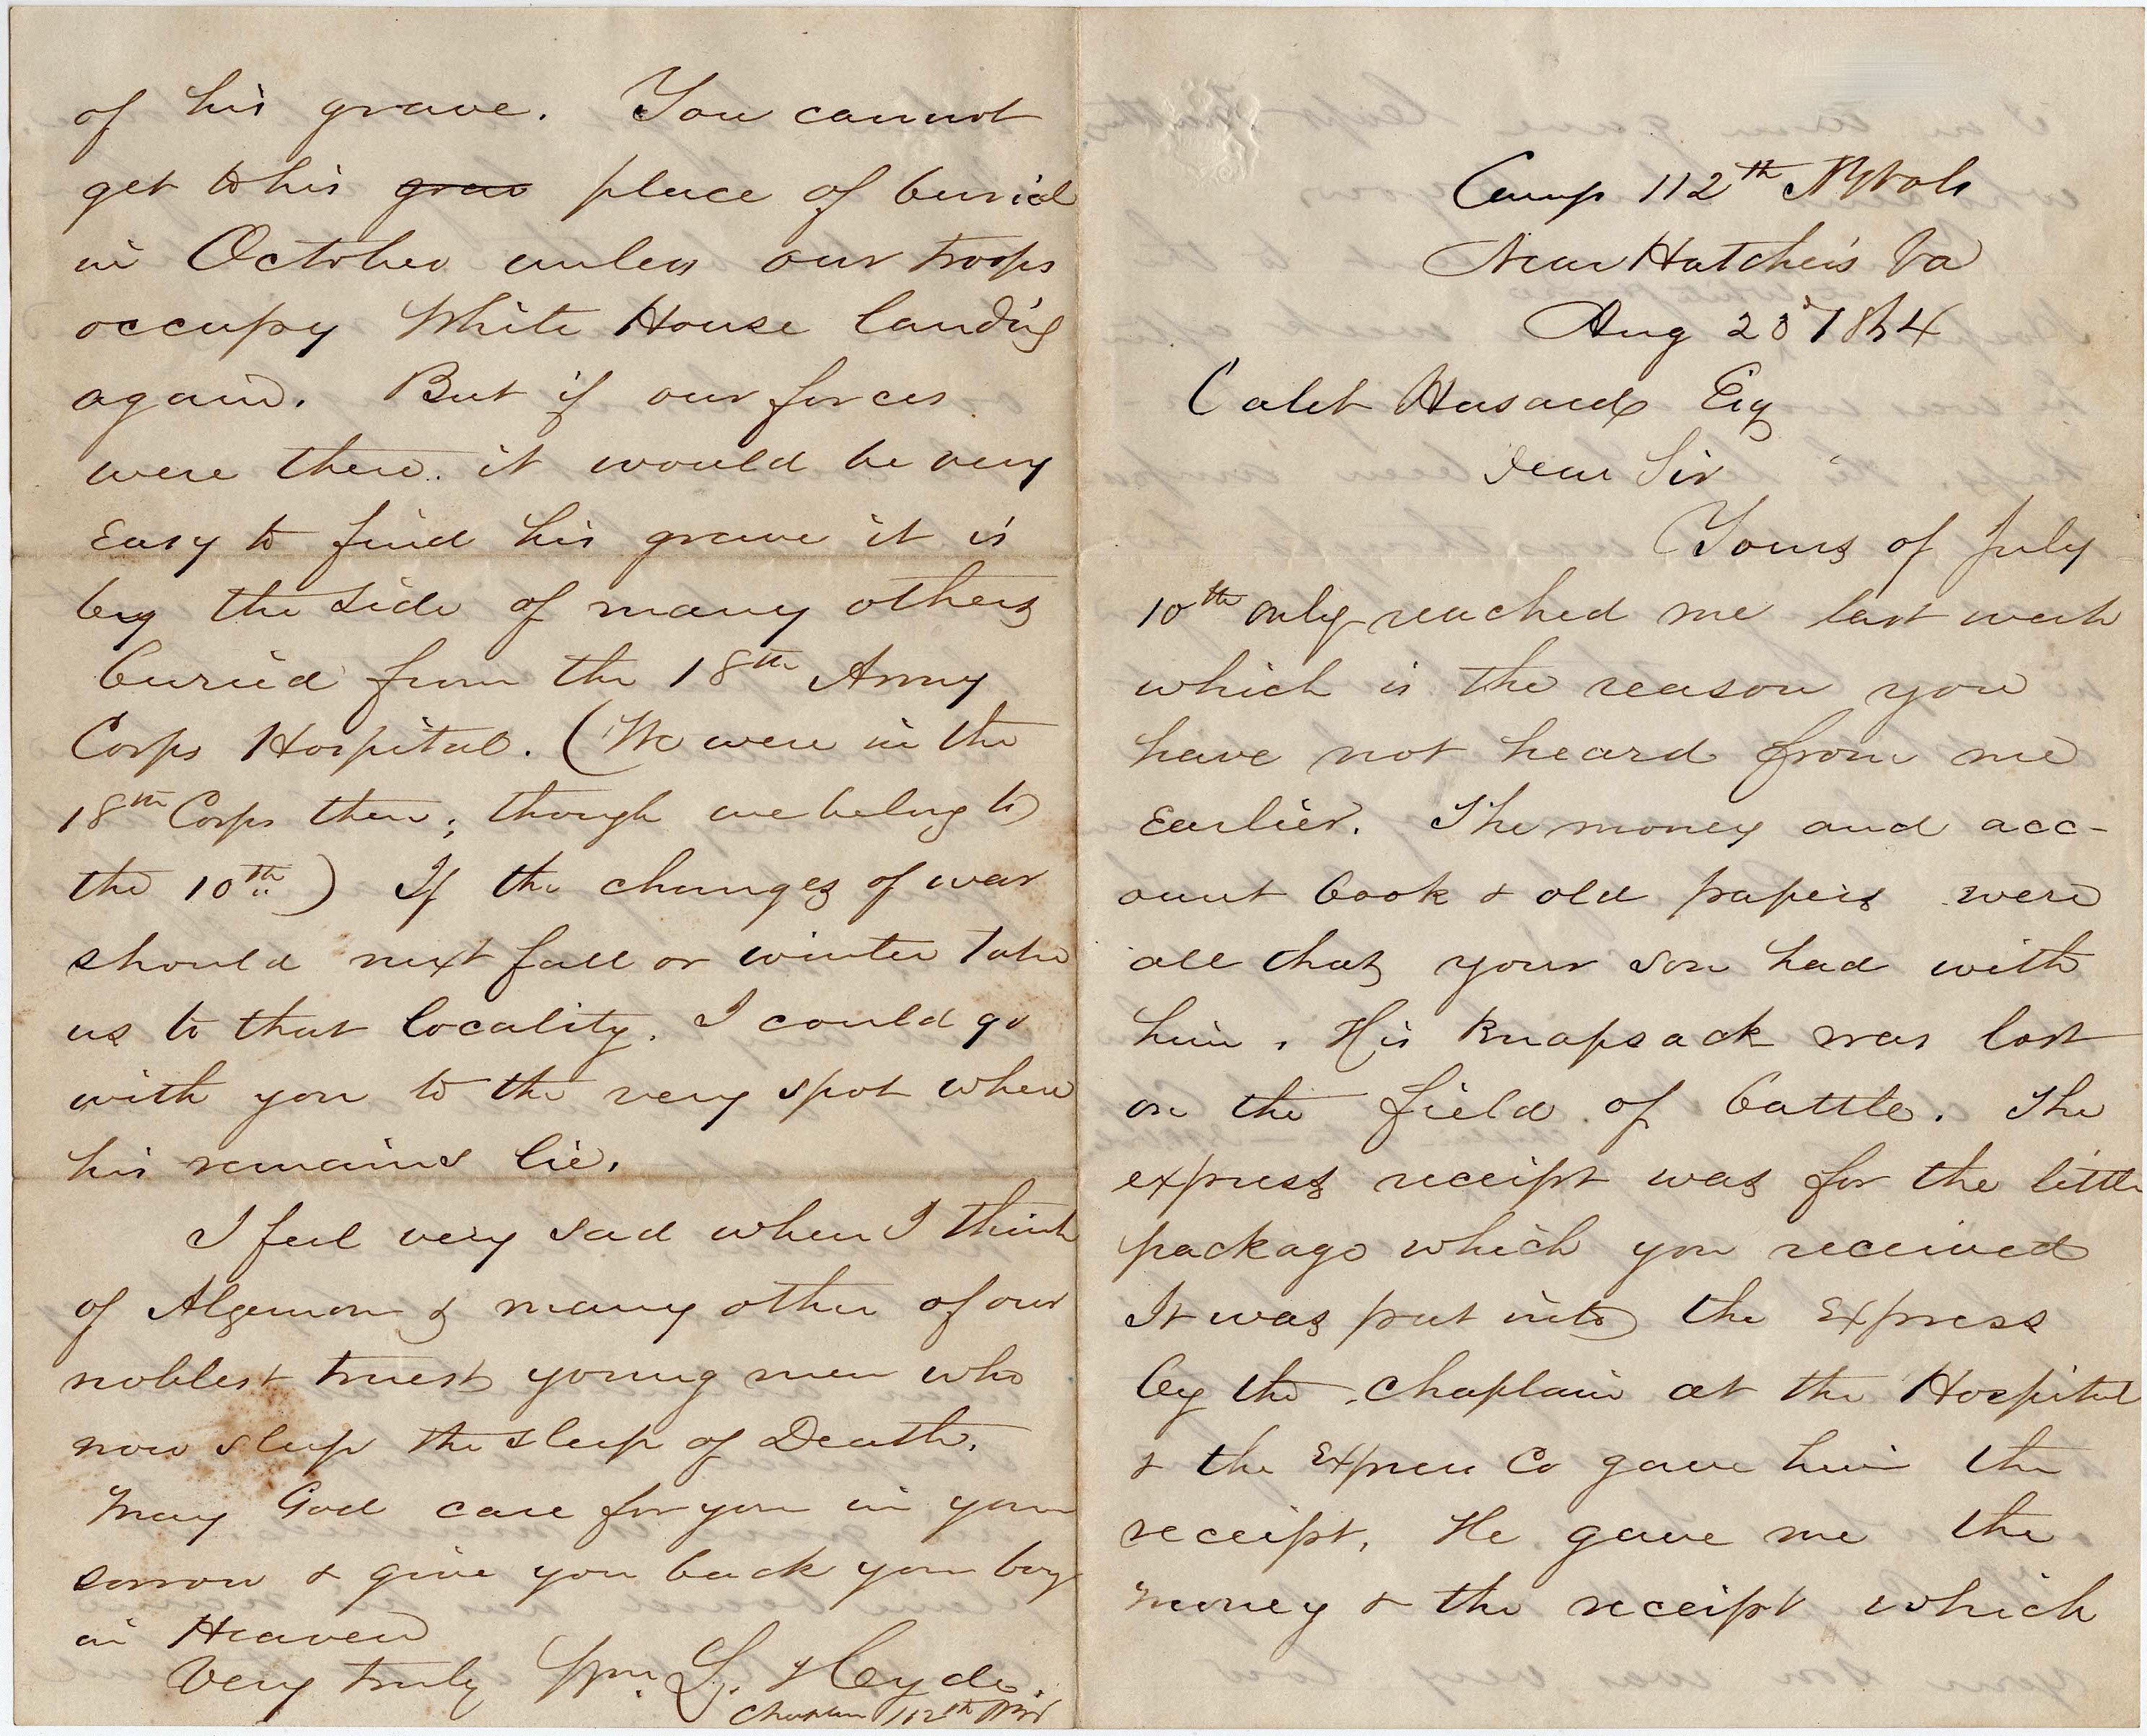 Camp 112th NYVols
Near Hatchers Va
Aug 23d 1864
Caleb Hazard Esq
Dear Sir
Yours of July
10th only reached me last week
which is the reason you
have not heard from me
Earlier. The money and acc-
ount book & old papers were
all that your son had with
him. His Knapsack was lost
on the field of battle. The
express receipt was for the little
package which you received
It was put into the Express
by the Chaplain at the Hospital
& the Express Co gave him the
receipt. He gave me the
money & the receipt which
of his grave. You cannot
get to his grav place of burial
in October unless our troops
occupy White House landing
again. But if our forces
were there. it would be very
Easy to find his grave it is
by the side of many others
buried from the 18th Army
Corps Hospital. (We were in the
18th Corps then; though we belong to
the 10th) If the changes of war
should next fall or winter take
us to that locality. I could go
with you to the very spot where
his remains lie.
I feel very sad when I think
of Algernon & many other of our
noblest truest young men who
now sleep the sleep of Death.
May God care for you in your
sorrow & give you back your boy
in Heaven
Very truly Wm. L. Hyde.
Chaplain 112th NYV